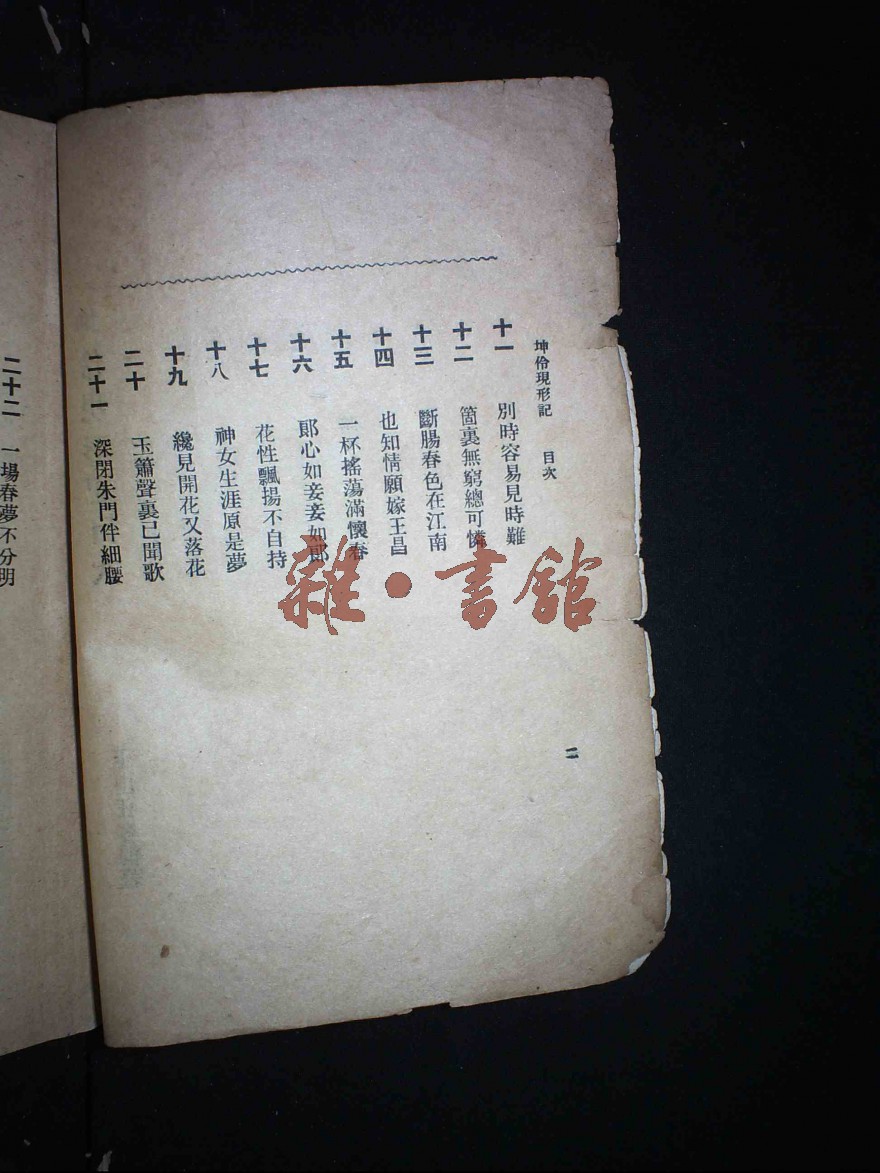 坤伶現形記 目次
二
十一 別時容易見時難
十二 箇裏無窮總可憐
十三 斷腸春色在江南
十四 也知情願嫁王昌
十五 一杯搖蕩滿懷春
十六 郞心如妾妾如郞
十七 花性飄揚不自持
十八 神女生涯原是夢
十九 纔見開花又落花
二十 玉簫聲裏已聞歌
二十一 深閉朱門伴細腰
二十二 一場春夢不分明
雜·書館